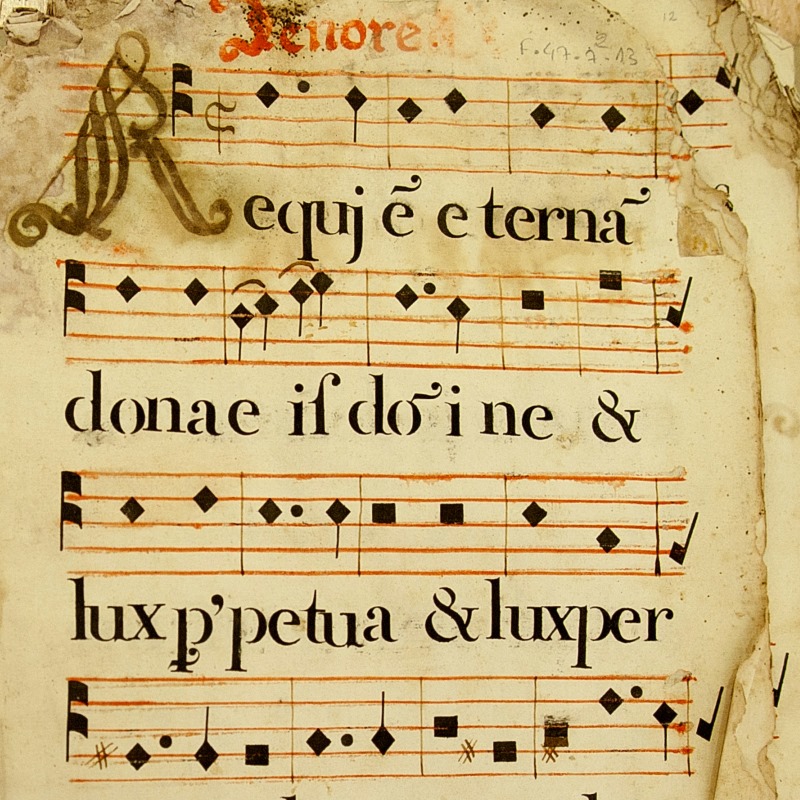 Tenore
12
F. 47. 2. 13
Requj ẽ eternã
donae iſ dõ i ne &
lux p'petua & luxper